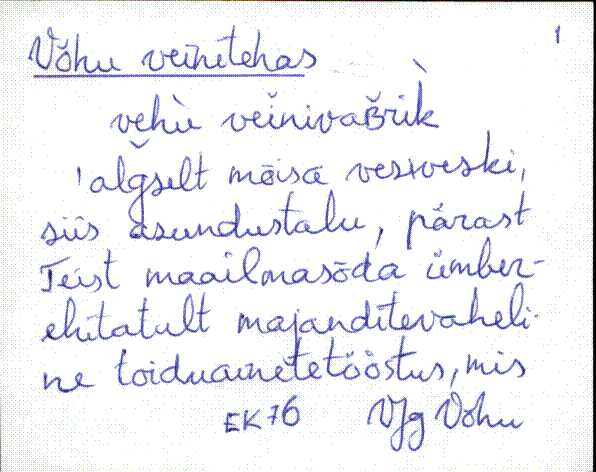 1
Võhu veinitehas
vehù veinivaʙrik
algselt mõisa vesiveski,
siis asundustalu, pärast
Teist maailmasõda ümber-
ehitatult majanditevaheli-
ne toiduainetetööstus, mis
EK 76 VJg Võhu